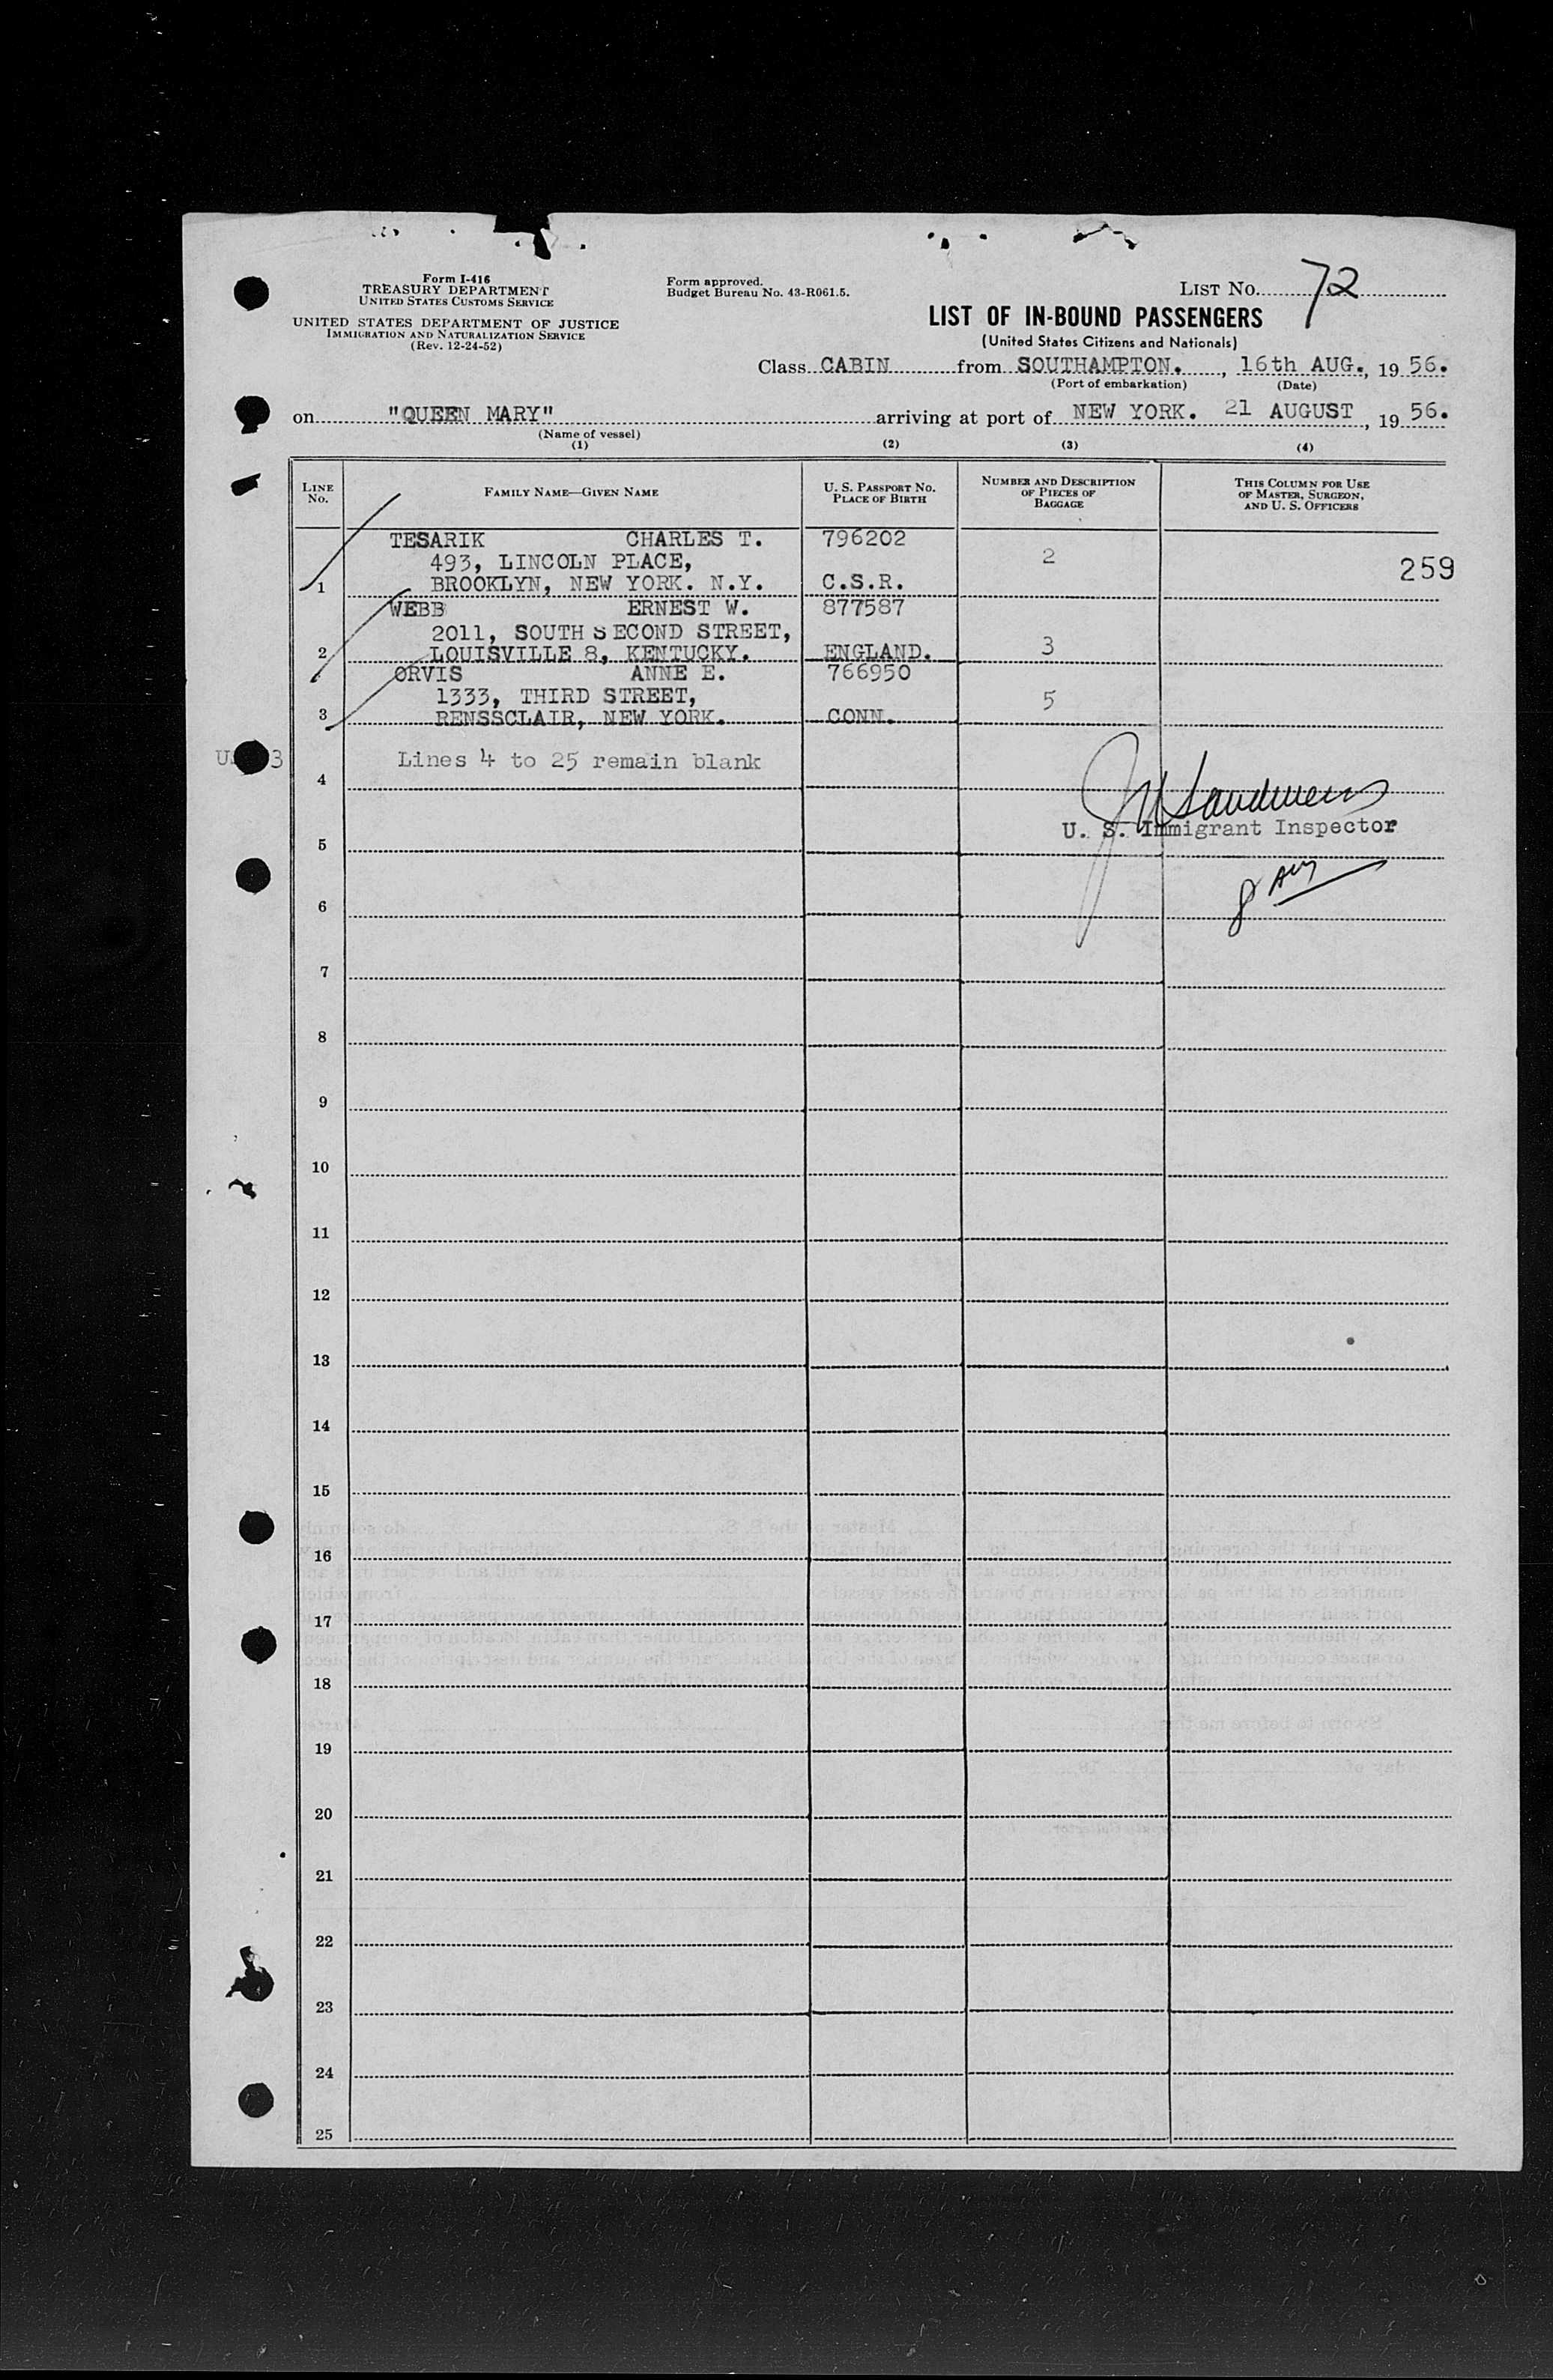 Form I-416
TREASURY DEPARTMENT
UNITED STATES CUSTOMS SERVICE
UNITED STATES DEPARTMENT OF JUSTICE
IMMIGRATION AND NATURALIZATION SERVICE
(Rev. 12-24-52)
Form approved.
Budget Bureau No. 43-R061.5.
LIST NO. 72
LIST OF IN-BOUND PASSENGERS
(United States Citizens and Nationals)
Class CABIN from SOUTHAMPTON. , 16th AUG., 19 56.
(Port of embarkation) (Date)
on "QUEEN MARY" arriving at port of NEW YORK. 21 AUGUST , 19 56.
(Name of vessel)
(1) (2) (3) (4)
LINE NO.
FAMILY NAME—GIVEN NAME
U. S. PASSPORT NO. PLACE OF BIRTH
NUMBER AND DESCRIPTION OF PIECES OF BAGGAGE
THIS COLUMN FOR USE OF MASTER, SURGEON, AND U. S. OFFICERS
TESARIK CHARLES T. 796202
493, LINCOLN PLACE, 2 259
1 BROOKLYN, NEW YORK. N.Y. C.S.R.
WEBB ERNEST W. 877587
2011, SOUTH SECOND STREET,
2 LOUISVILLE 8, KENTUCKY. ENGLAND. 3
ORVIS ANNE E. 766950
1333, THIRD STREET, 5
3 RENSSCLAIR, NEW YORK. CONN.
3 Lines 4 to 25 remain blank
4
U. S. Immigrant Inspector
5
6
7
8
9
10
11
12
13
14
15
16
17
18
19
20
21
22
23
24
25